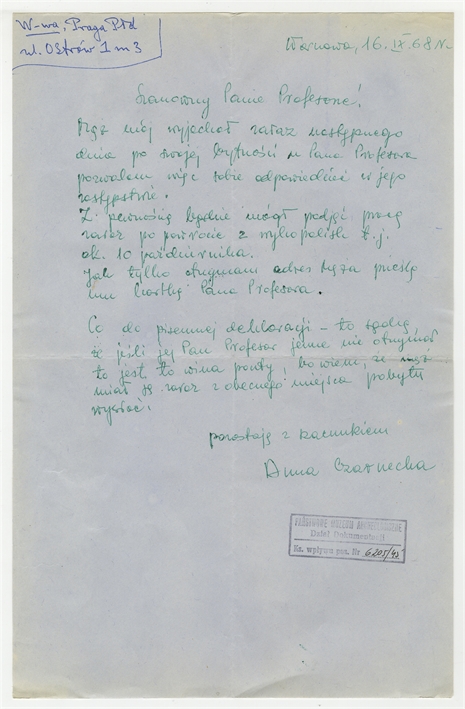 W-wa, Praga Płd
ul. Ostrów 1 m 3
Warszawa, 16. IX. 68 r.
Szanowny Panie Profesorze!
Mąż mój wyjechał zaraz następnego
dnia po swojej bytności u Pana Profesora
pozwalam więc sobie odpowiedzieć w jego
zastępstwie.
Z pewnością będzie mógł podjąć pracę
zaraz po powrocie z wykopalisk t.j.
ok. 10 października.
Jak tylko otrzymam adres męża prześlę
mu kartkę Pana Profesora.
Co do pisemnej deklaracji – to sądzę,
że jeśli jej Pan Profesor jeszcze nie otrzymał
to jest to wina poczty, bo wiem, że mąż
miał ją zaraz z obecnego miejsca pobytu
wysłać.
pozostaję z szacunkiem
Anna Czarnecka
PAŃSTWOWE MUZEUM ARCHEOLOGICZNE
Dział Dokumentacji
Ks. wpływu poz. Nr 6205/42